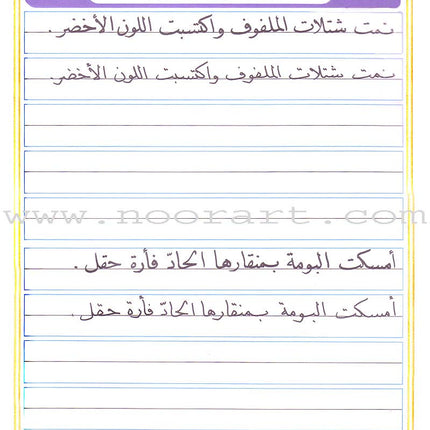 نمت شتلات الملفوف واكتسبت اللون الأخضر.
نمت شتلات الملفوف واكتسبت اللون الأخضر.
www.noorart.com
أمسكت البومة بمنقارها الحادّ فأرة حقل.
أمسكت البومة بمنقارها الحادّ فأرة حقل.